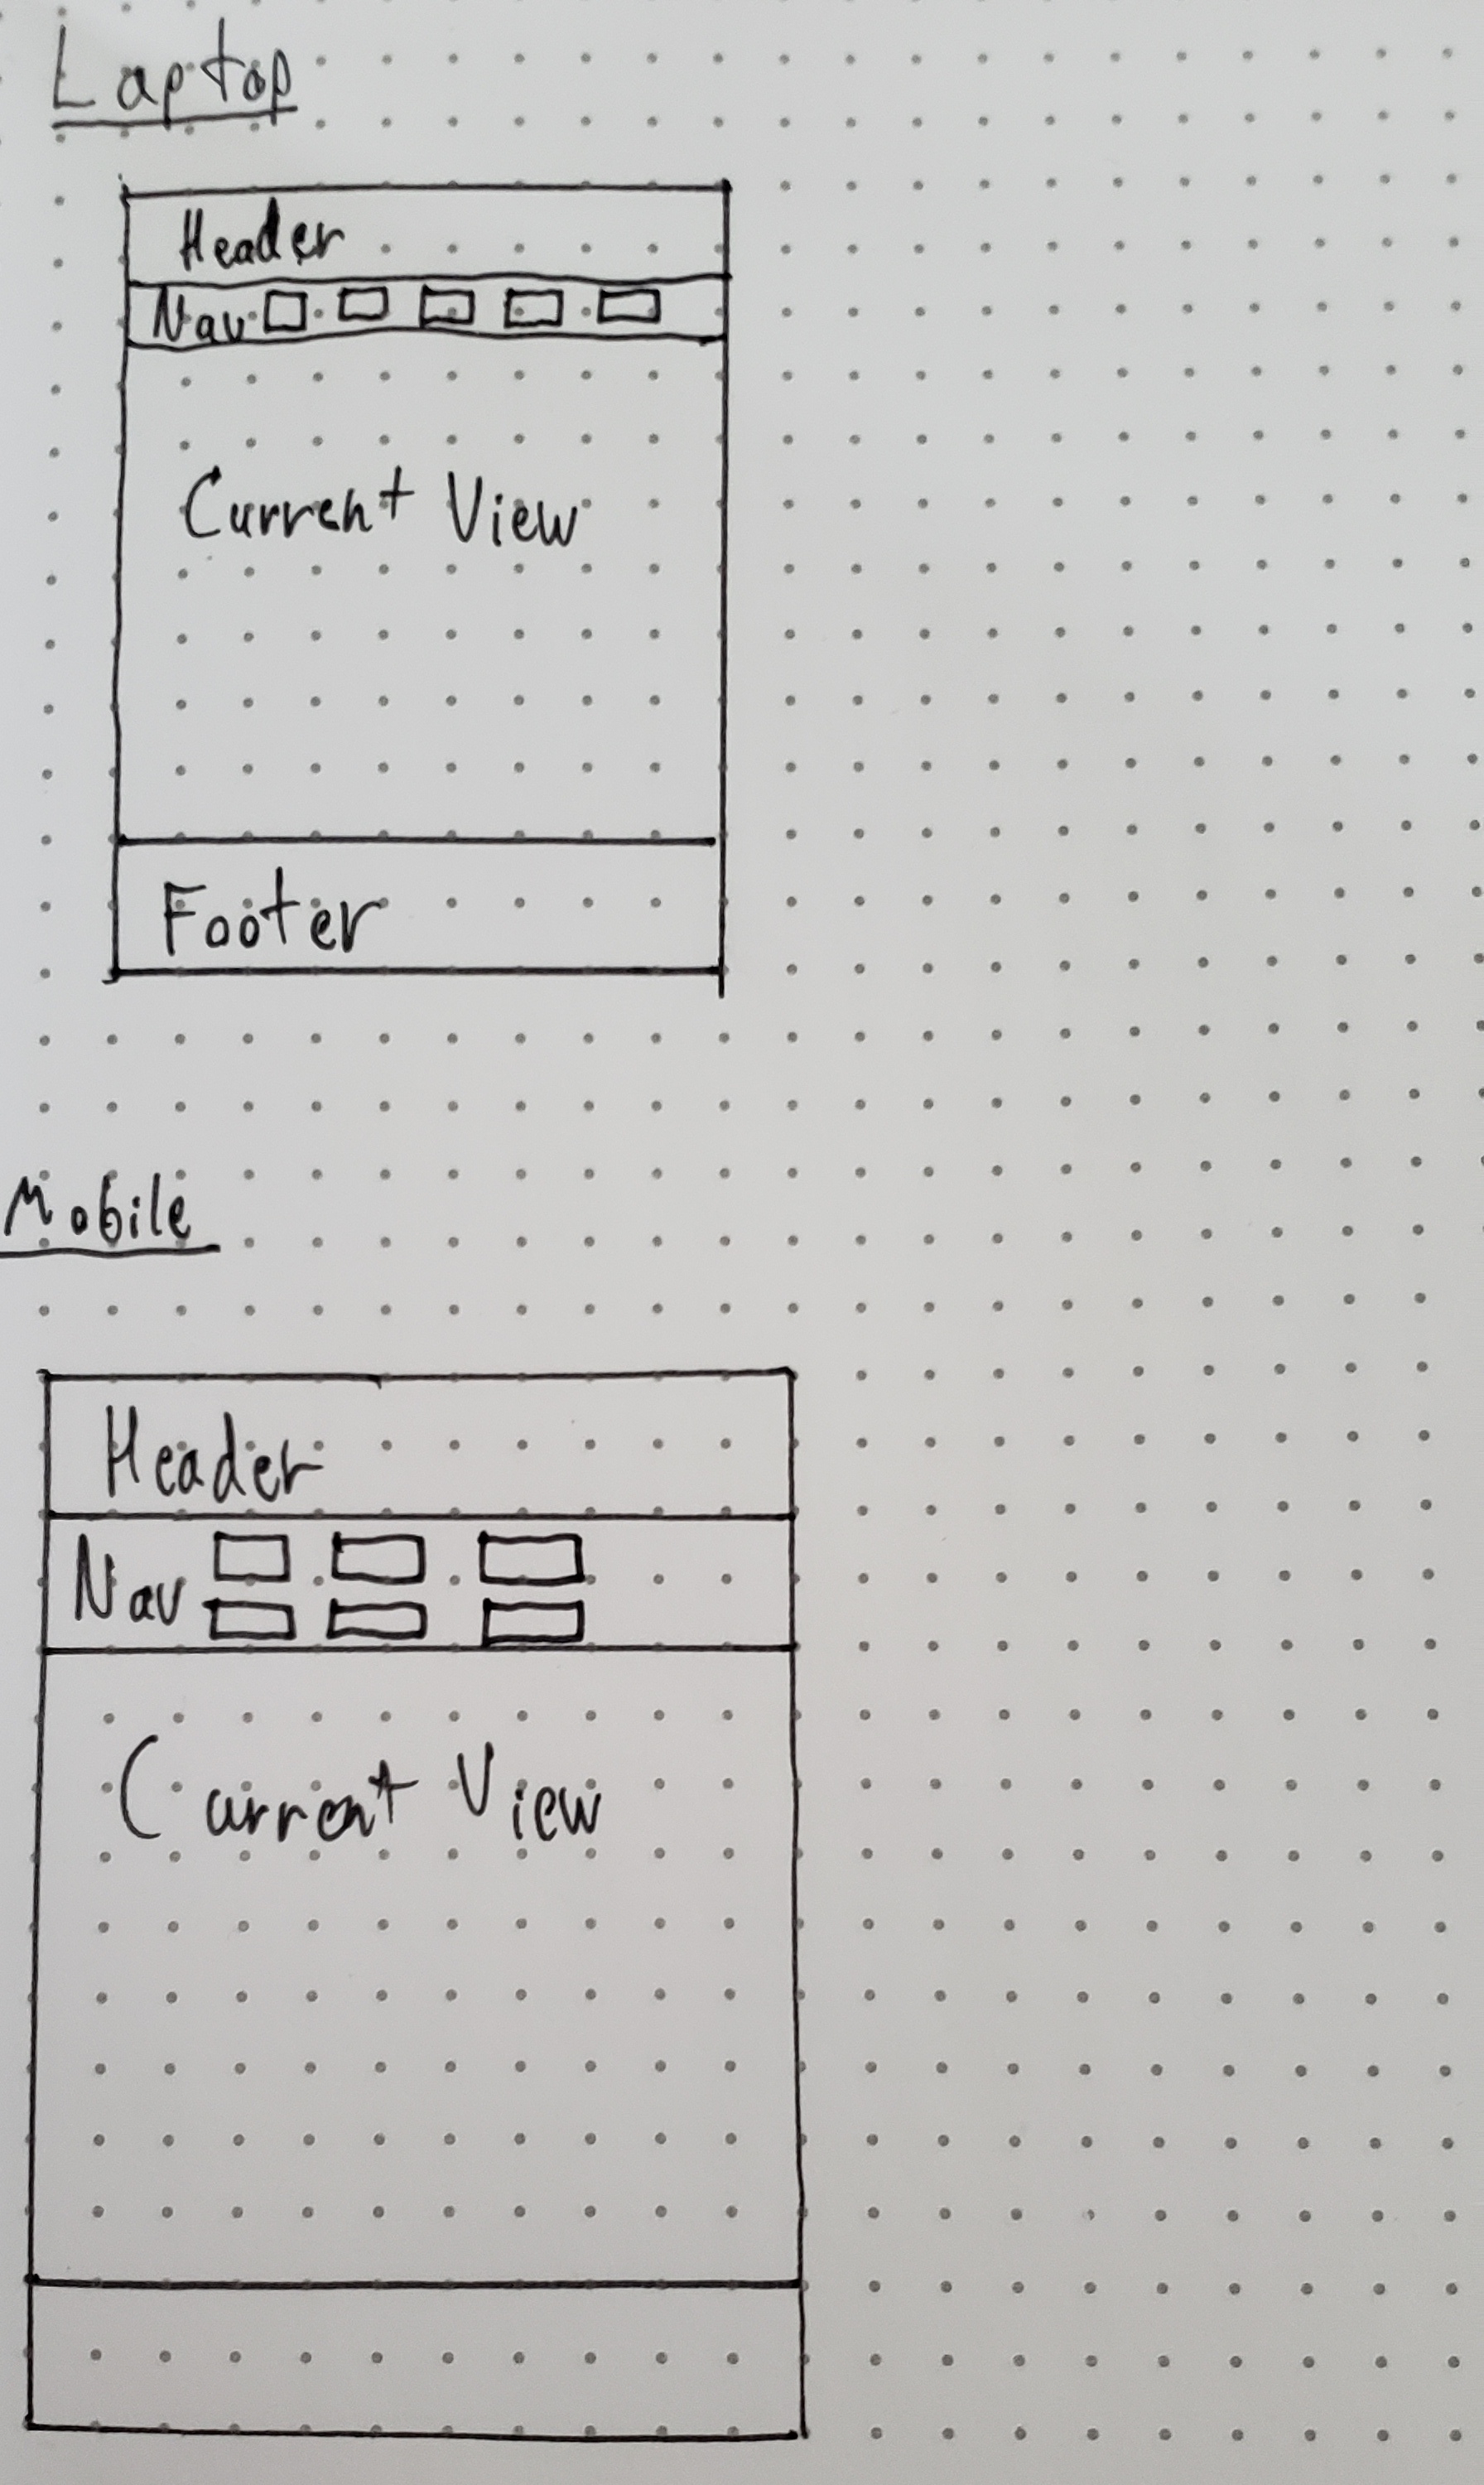 Laptop
Header
Nav
Current View
Footer
Mobile
Header
Nav
Current View